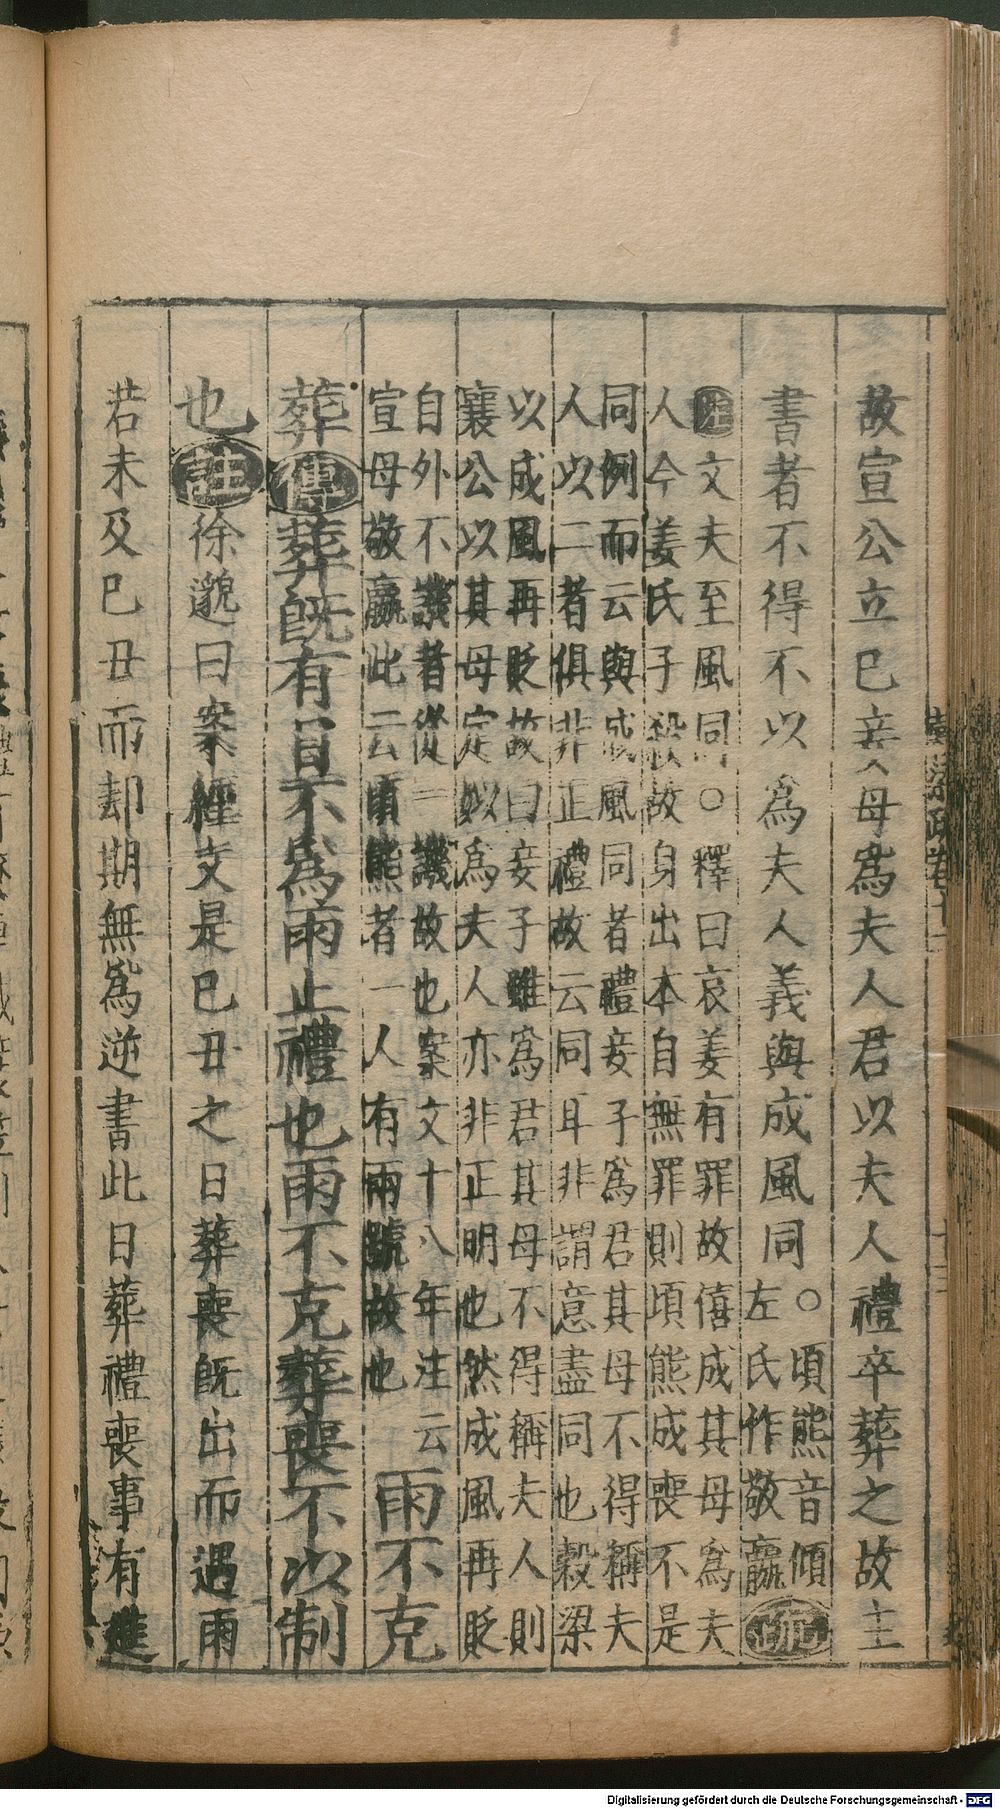 故宣公立巳妾母爲夫人君以夫人禮卒葬之故主
書者不得不以爲夫人義與成風同○頃熊音傾
左氏作敬嬴疏
注文夫至風同○釋曰哀姜有罪故僖成其母爲夫
人今姜氏子殺故身出本自無罪則頃熊成喪不是
同例而云與成風同者禮妾子爲君其母不得稱夫
人以二者俱非正禮故云同耳非謂意盡同也穀梁
以成風再貶故曰妾子雖爲君其母不得稱夫人則
襄公以其母定姒爲夫人亦非正明也然成風再貶
自外不譏者從一譏故也案文十八年注云
宣母敬嬴此云頃熊者一人有兩號故也
雨不克
葬傳葬既有日不爲雨止禮也雨不克葬喪不以制
也註徐邈曰案經文是巳丑之日葬喪既出而遇雨
若未及巳丑而却期無爲逆書此日葬禮喪事有進
Digitalisierung gefördert durch die Deutsche Forschungsgemeinschaft - DFG